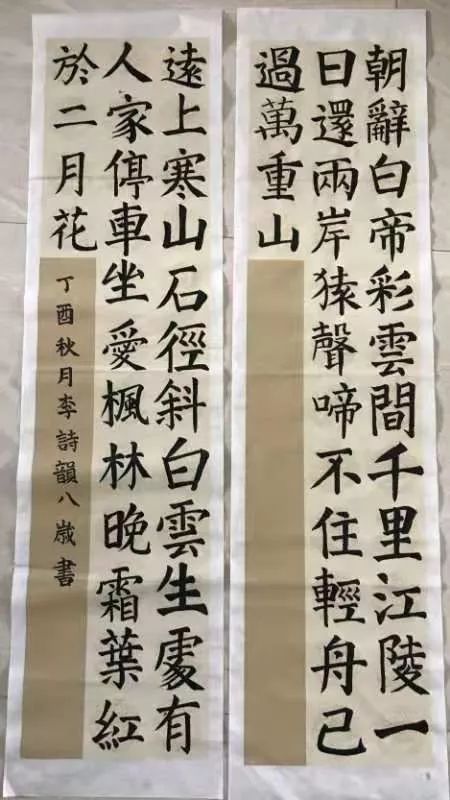 朝辭白帝彩雲間千里江陵一
日還兩岸猿聲啼不住輕舟已
過萬重山
遠上寒山石徑斜白雲生處有
人家停車坐愛楓林晚霜葉紅
於二月花
丁酉秋月李詩韻八歲書